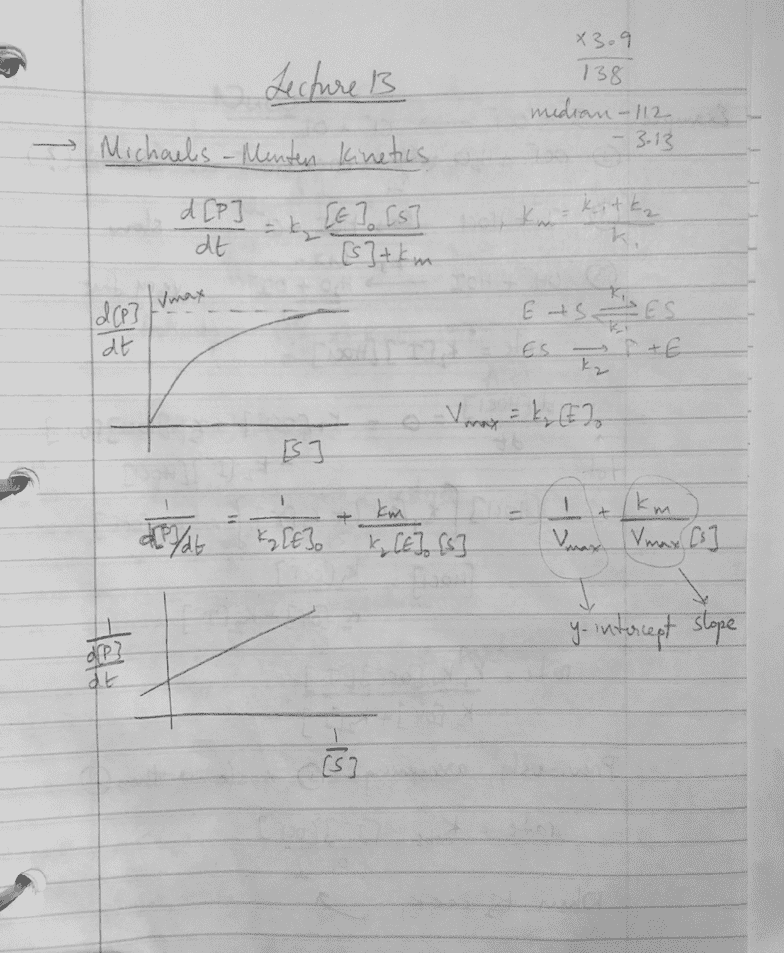 x 3.9
138
Lecture 13
median - 112
- 3.13
→ Michaelis - Menten Kinetics
d[P]/dt = k₂ [E]₀[S]/([S]+km)
Km = (k₋₁+k₂)/k₁
d[P]/dt
Vmax
[S]
E + S ⇌ ES
k₁
k₋₁
ES → P + E
k₂
Vmax = k₂[E]₀
1/(d[P]/dt) = 1/(k₂[E]₀) + km/(k₂[E]₀[S]) = 1/Vmax + km/(Vmax[S])
y-intercept slope
1/(d[P]/dt)
1/[S]